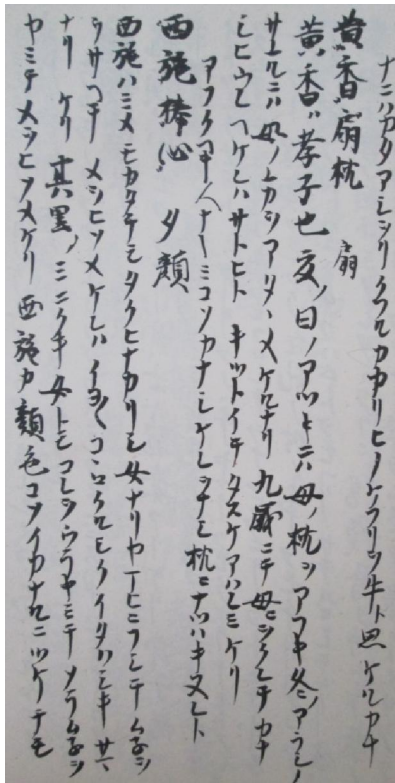 ナニハカタアシフリタツルカカリヒノケフリヲ牛ト思ケルカナ
黄香扇枕 扇
黄香ハ孝子也夏ノ日ノアツキニハ母ノ枕ヲアフキ冬ノアラシノ
サユルニハ母ノムカシアタヽメケルナリ九歳ニテ母ニヲクレテカナ
シヒウレヘケレハサトヒトキットイテタスケアハレミケリ
アフクコ 人ナ ミコソカナシケレ 枕ニナツハキヌレト
西施捧心 夕顔
西施ハミメモカタチモタクヒナカリシ女ナリヤ ヒニフシテムネヲ
ヲサヘテメシヒソメケレハイヨ〱コヽロクルシクイタハシキサマ
ナリケリ其里ノミニクキ女トモコレヲウラヤミテメラムネヲ
ヤミテメシヒソメケリ西施カ顔色コソイカナルニツケテモ